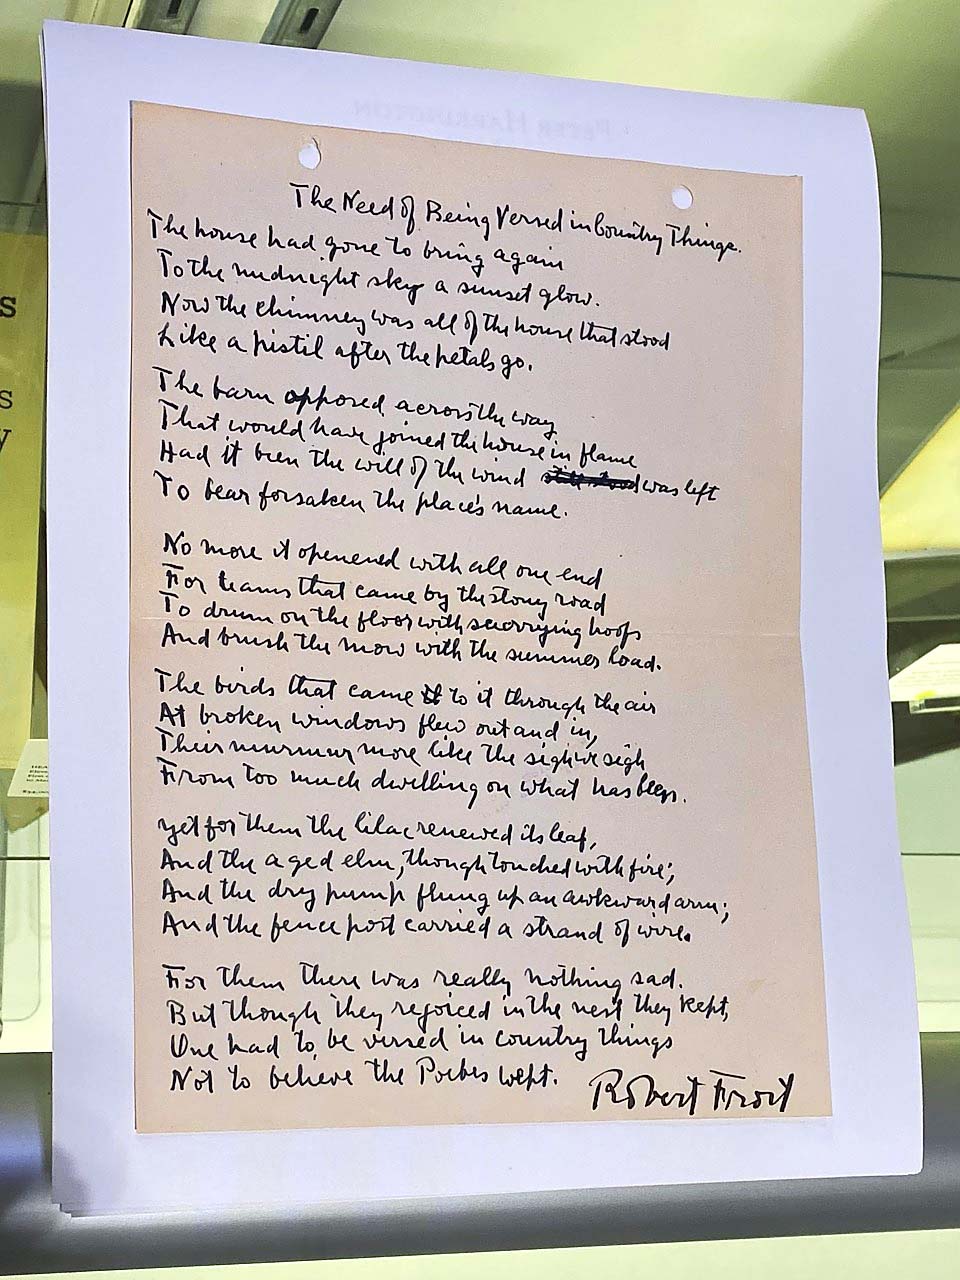 PETER HARRINGTON
The Need of Being Versed in Country Things.
The house had gone to bring again
To the midnight sky a sunset glow.
Now the chimney was all of the house that stood
Like a pistil after the petals go.
The barn opposed across the way
That would have joined the house in flame
Had it been the will of the wind was left
To bear forsaken the place's name.
No more it openened with all one end
For teams that came by the stony road
To drum on the floor with scurrying hoofs
And brush the mow with the summer load.
The birds that came to it through the air
At broken windows flew out and in,
Their murmur more like the sigh we sigh
From too much dwelling on what has been.
Yet for them the lilac renewed its leaf,
And the aged elm, though touched with fire;
And the dry pump flung up an awkward arm;
And the fence post carried a strand of wire.
For them there was really nothing sad.
But though they rejoiced in the nest they kept,
One had to be versed in country things
Not to believe the Poebes wept.
Robert Frost